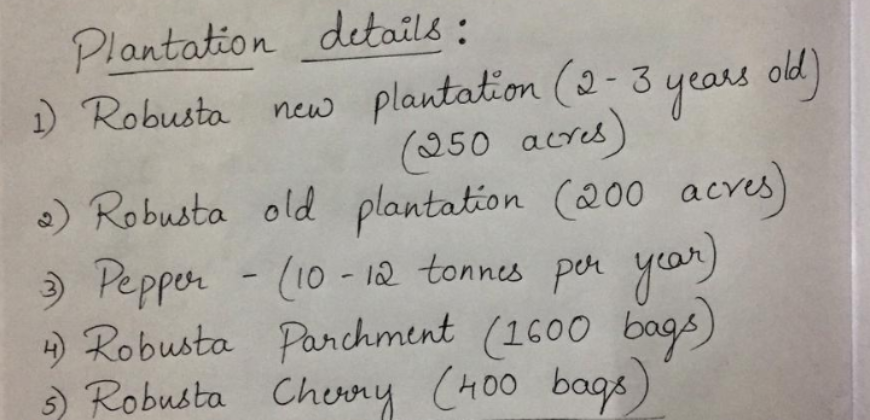 Plantation details :
1) Robusta new plantation (2-3 years old)
(250 acres)
2) Robusta old plantation (200 acres)
3) Pepper - (10 - 12 tonnes per year)
4) Robusta Parchment (1600 bags)
5) Robusta Cherry (400 bags)